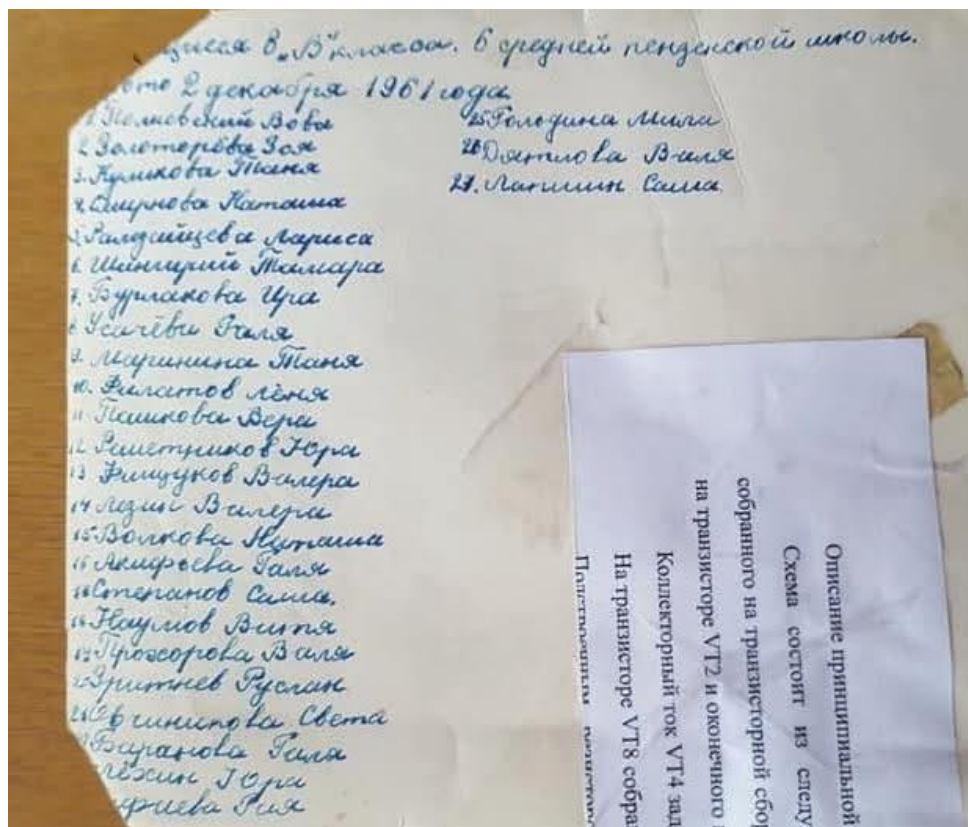 в „В" класса. 6 средней пензенской школы.
2 декабря 1961 года
Вова
2. Золоторёва Зоя
3. Куликова Таня
4. Смирнова Наташа
Лариса
6. Тамара
7. Бурлакова Ира
Усачёва Галя
9. Маринина Таня
10. Филатов Лёня
11. Пашкова Вера
12. Решетников Юра
13. Валера
14. Лезин Валера
15. Волкова Наташа
16. Акифьева Галя
Степанов Саша.
Наумов Витя
Прохорова Валя
Руслан
Овчинникова Света
Баранова Галя
Юра
25. Гольдина Мила
26. Дятлова Валя
27. Лапшин Саша
Описание принципиальной
Схема состоит из следу
собранного на транзисторной сбор
на транзисторе VT2 и оконечного
Коллекторный ток VT4 зад
На транзисторе VT8 собра